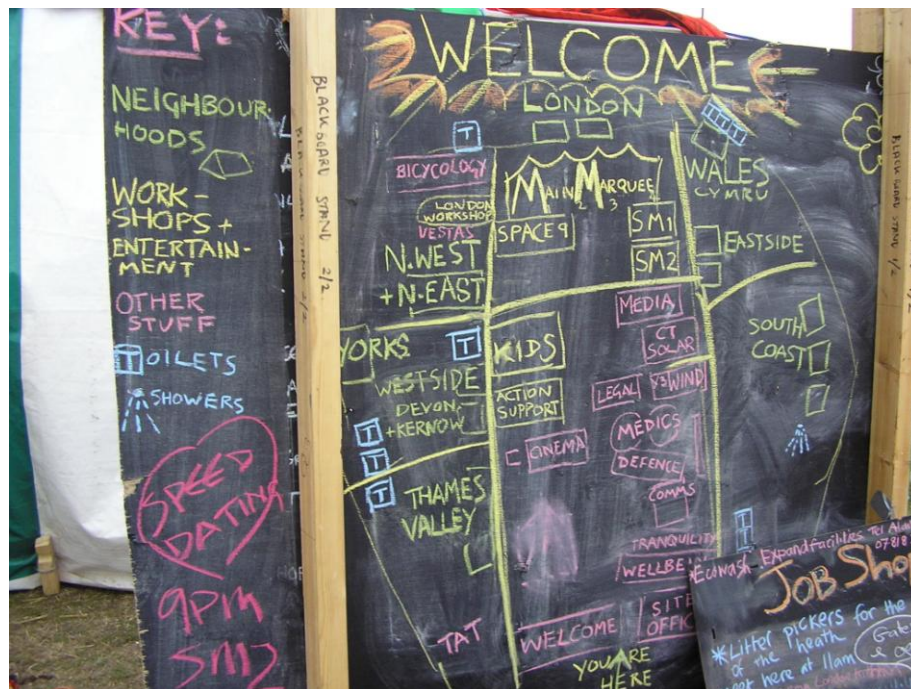 KEY:
NEIGHBOUR-
HOODS
WORK-
SHOPS +
ENTERTAIN-
MENT
OTHER
STUFF
TOILETS
SHOWERS
SPEED
DATING
9PM
SM2
BLACKBOARD STAND 2/2
WELCOME
LONDON
T
BICYCOLOGY
MAIN MARQUEE
2 3
WALES
CYMRU
LONDON
WORKSHOP
VESTAS
SPACE 9
SM1
SM2
EASTSIDE
N.WEST
+ N.EAST
MEDIA
SOUTH
COAST
YORKS
T
KIDS
CT
SOLAR
WESTSIDE
ACTION
SUPPORT
LEGAL
Y3WIND
DEVON
+ KERNOW
MEDICS
T
T
T
CINEMA
DEFENCE
THAMES
VALLEY
COMMS
T
TRANQUILITY
WELLBE
TAT
WELCOME
SITE
OFFIC
YOU ARE
HERE
BLACK BOARD STAND 1/2
Ecowash - Expand facilities Tel
07818
JOB Sho
*Litter pickers for the
of the heath
here at 11am
Gate